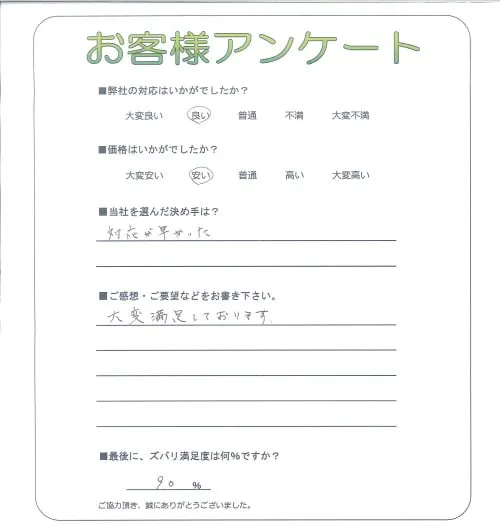 お客様アンケート
■弊社の対応はいかがでしたか？
大変良い 良い 普通 不満 大変不満
■価格はいかがでしたか？
大変安い 安い 普通 高い 大変高い
■当社を選んだ決め手は？
対応が早かった
■ご感想・ご要望などをお書き下さい。
大変満足しております.
■最後に、ズバリ満足度は何%ですか？
90 %
ご協力頂き、誠にありがとうございました。